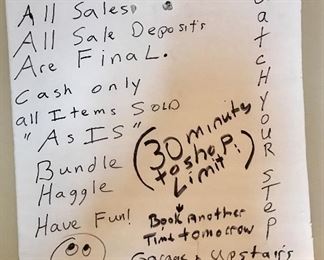 All Sales
All Sale Deposits
Are Final.
Cash only
all Items SOLD
"As IS"
Bundle
Haggle
Have Fun!
(30 minute
to shop.
Limit)
Book Another
Time tomorrow
Garage & Upstairs
atch your step